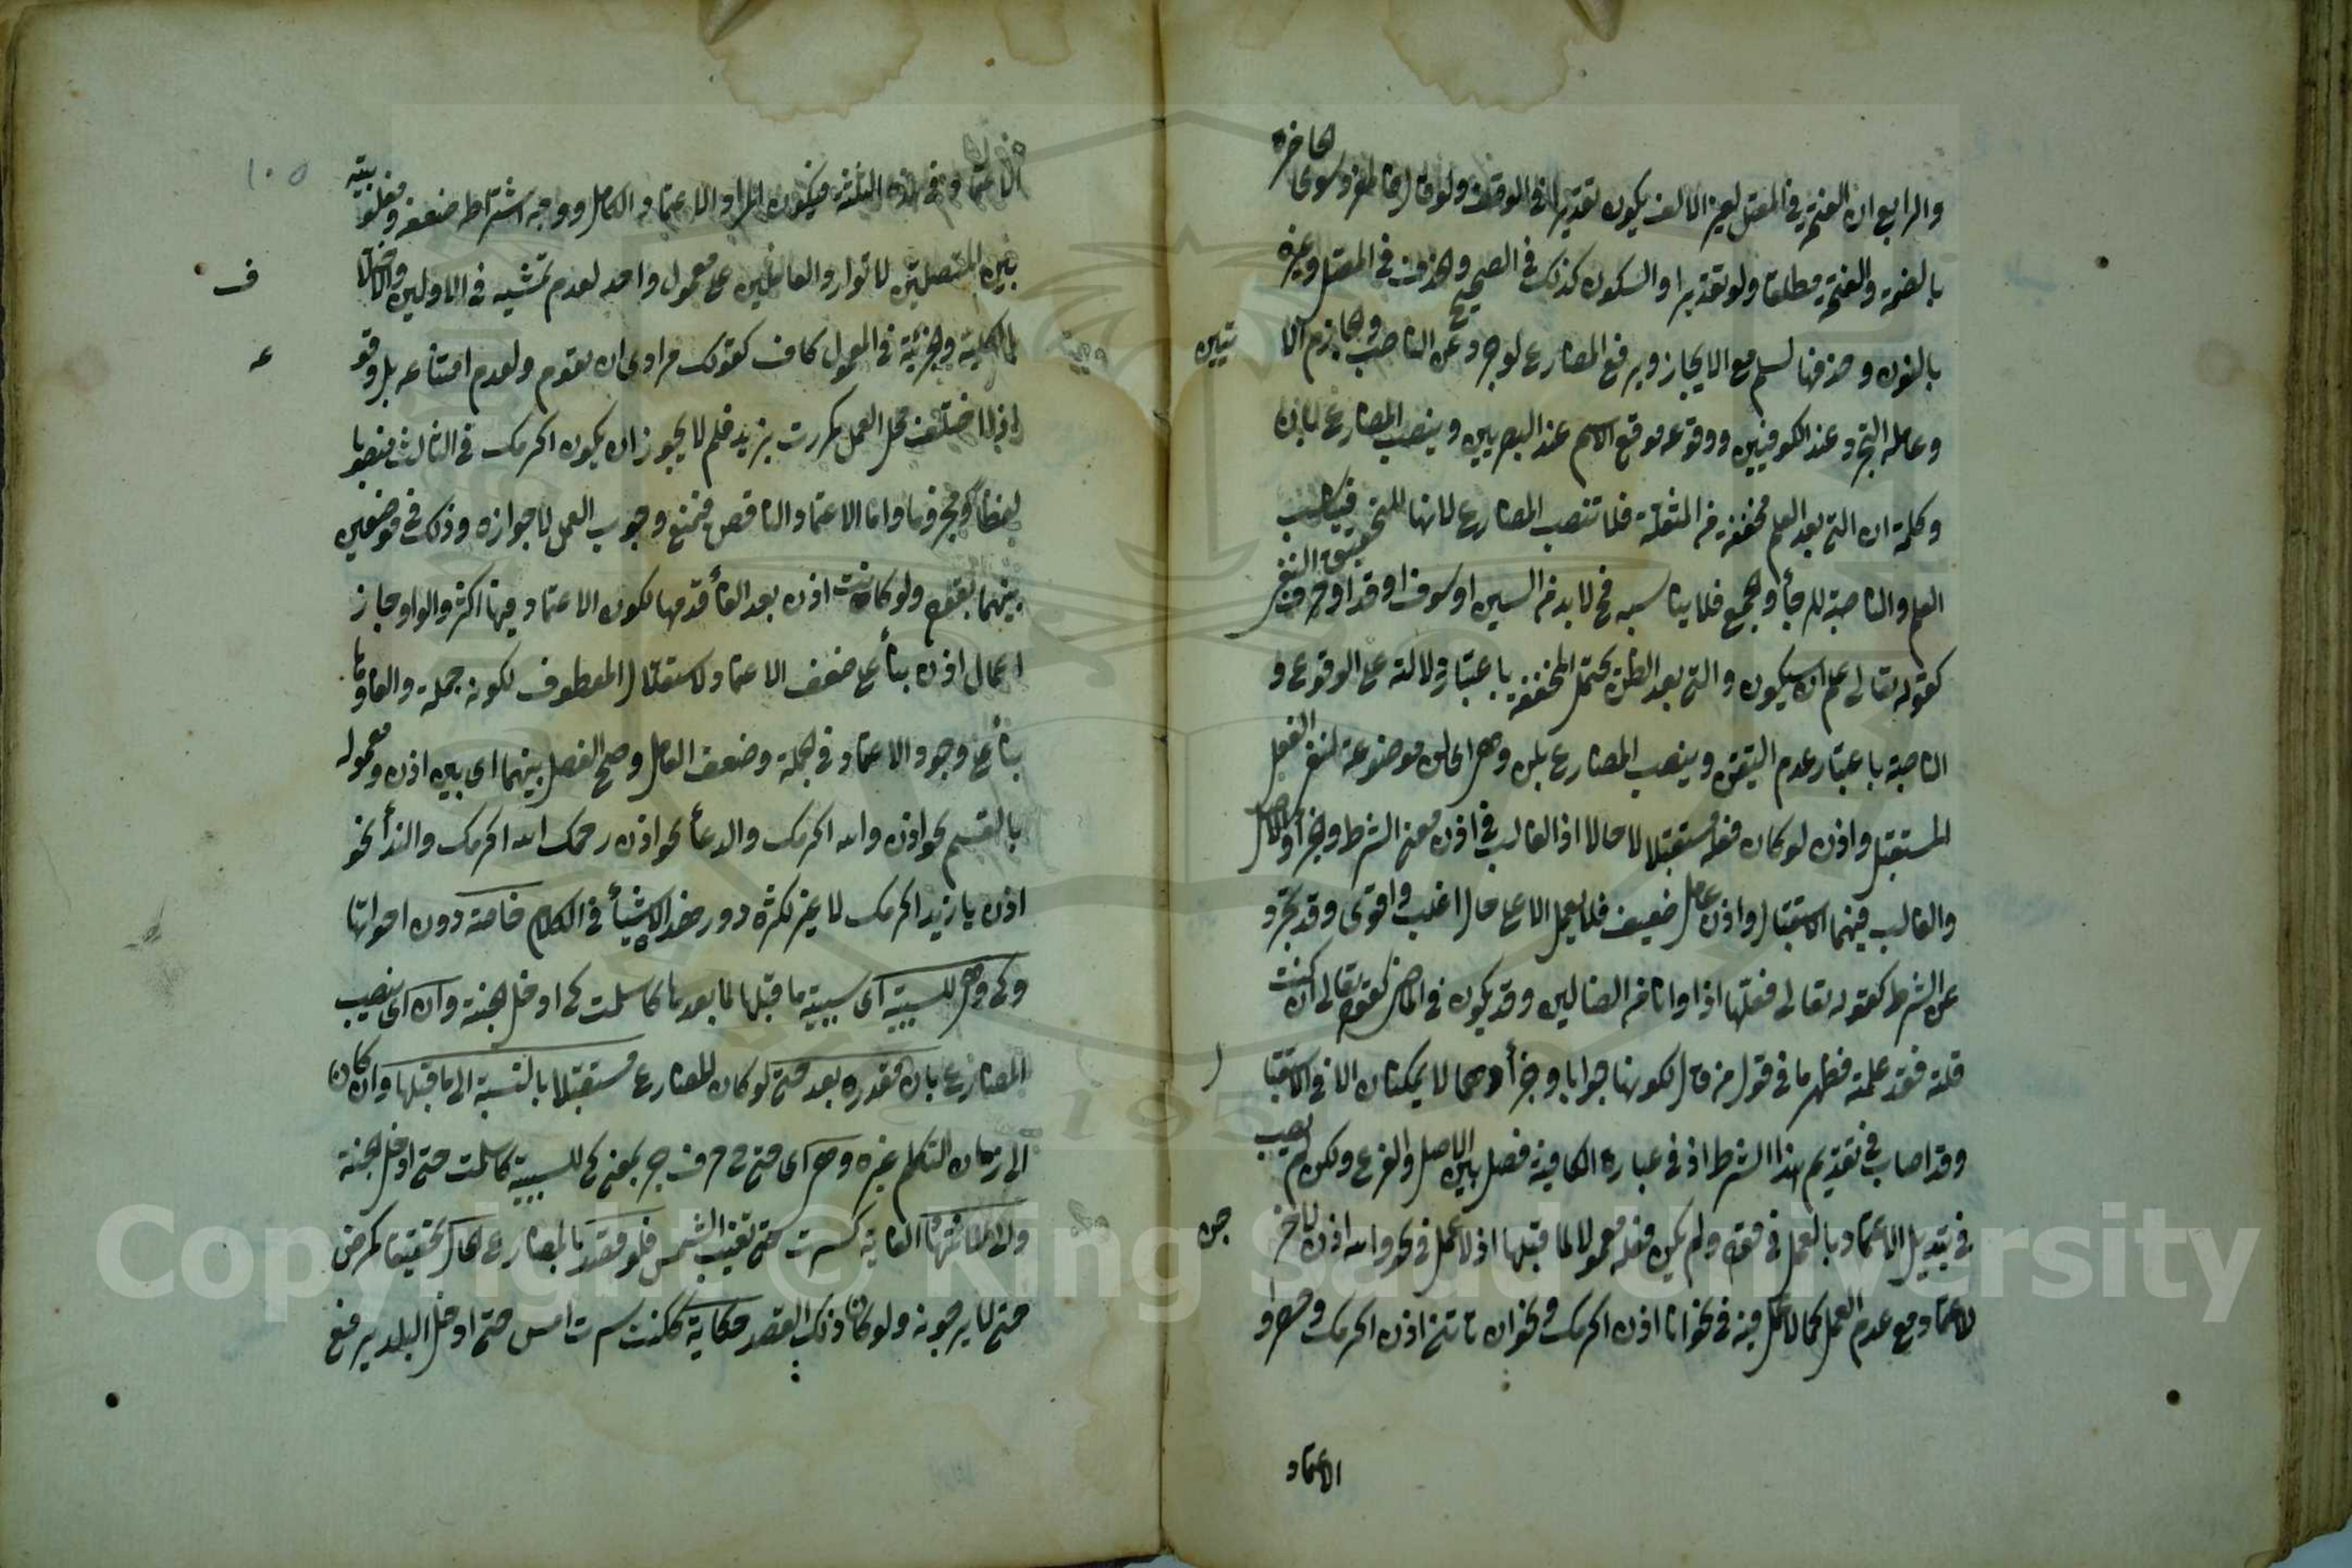 والرابع ان الفتحة في المعتل بغير الالف يكون تقديرا في الوقف
بالضمة والفتحة مطلقا ولو تقديرا والسكون كذلك في الصحيح والحذف في المعتل وغيره
بالنون وحذفها لسلم مع الايجاز ويرفع المضارع لوجرد عن الناصب والجازم
وعامله التجرد عند الكوفيين ووقوعه موقع الاسم عند البصريين وينصب المضارع بان
وكلمة ان التي بعد العلم مخففة من المثقلة فلا تنصب المضارع لانها للتحقيق فيناسب
العلم والناصبة للرجأ والطمع فلا يناسبه فح لا بد من السين او سوف او قد او حرف النفي
كقوله تعالى علم ان سيكون والتي بعد الظن يحتمل المخففة باعتبار دلالته على الوقوع و
الناصبة باعتبار عدم التيقن وينصب المضارع بلن وهى اى لن موضوعة لنفى الفعل
المستقبل واذن لو كان فعله مستقبلا لا حالا اذ الغالب في اذن معنى الشرط والجزأ
والغالب فيهما الاستقبال واذن عامل ضعيف فلا يعمل الا على حال اغلب واقوى وقد تجرد
عن الشرط كقوله تعالى فعلتها اذا وانا من الضالين وقد يكون في الماضى كقوله تعالى ان كنت
قلته فقد علمته فظهر ما في قول من قال لكونها جوابا وجزأ وهما لا يمكنان الا في الاستقبا
ل
وقد اصاب في تقديم هذا الشرط اذ في عبارة الكافية فصل بين الاصل والفرع ولكن لم يصب
في تبديل الاعتماد بالعمل في قوله ولم يكن فعله معمولا لما قبلها اذ لا عمل في نحو والله اذن
لاعتماد مع عدم العمل كما لا عمل فيه في نحو انا اذن اكرمك ونحو ان تاتني اذن اكرمك
الاعتماد
١٠٥
في هذه الثلثة فيكون المراد الاعتماد الكامل ووجه اشتراط ضعفه
بين المتصلين لا توارد العاملين على معمول واحد لعدم تمشيه في الاولين
ف
بالكلية والجزئية في المعمول كاف كقولك مرادى ان يقوم ولعدم امتناعه بل وقو
ع
اذا اختلف محل العمل كمررت بزيد فلم لا يجوز ان يكون اكرمك في الثالث منصوبا
لفظا ومجزوما واما الاعتماد الناقص فتمنع وجوب العمل لا جوازه وذلك في موضعين
بينهما بقوله ولو كانت اذن بعد الفأ قدمها لكون الاعتماد فيها اكثر والواو جاز
اعمال اذن بنأ على ضعف الاعتماد لاستقلال المعطوف لكونه جملة والغاؤها
بنأ على وجود الاعتماد في الجملة وضعف العامل وصح الفصل بينهما اى بين اذن ومعموله
بالقسم نحو اذن والله اكرمك والدعأ نحو اذن رحمك الله اكرمك والندأ نحو
اذن يا زيد اكرمك لا غير لكثرة دور هذه الاشيأ في الكلام خاصة دون اخواتها
وكى وهى للسببية اى سببية ما قبلها لما بعدها كاسلمت كى ادخل الجنة وان اى ينصب
المضارع بان مقدرة بعد حتى لو كان المضارع مستقبلا بالنسبة الى ما قبلها وان كان
الى زمان التكلم غيره وهى اى حتى ح حرف جر بمعنى كى للسببية كاسلمت حتى ادخل الجنة
ولانتهأ الغاية كسرت حتى تغيب الشمس فلو قصد بالمضارع الحال تحقيقا كمرض
حتى لا يرجونه ولو كان ذلك القصد حكاية ككنت سرت امس حتى ادخل البلد يرفع
Copyright © King Saud University